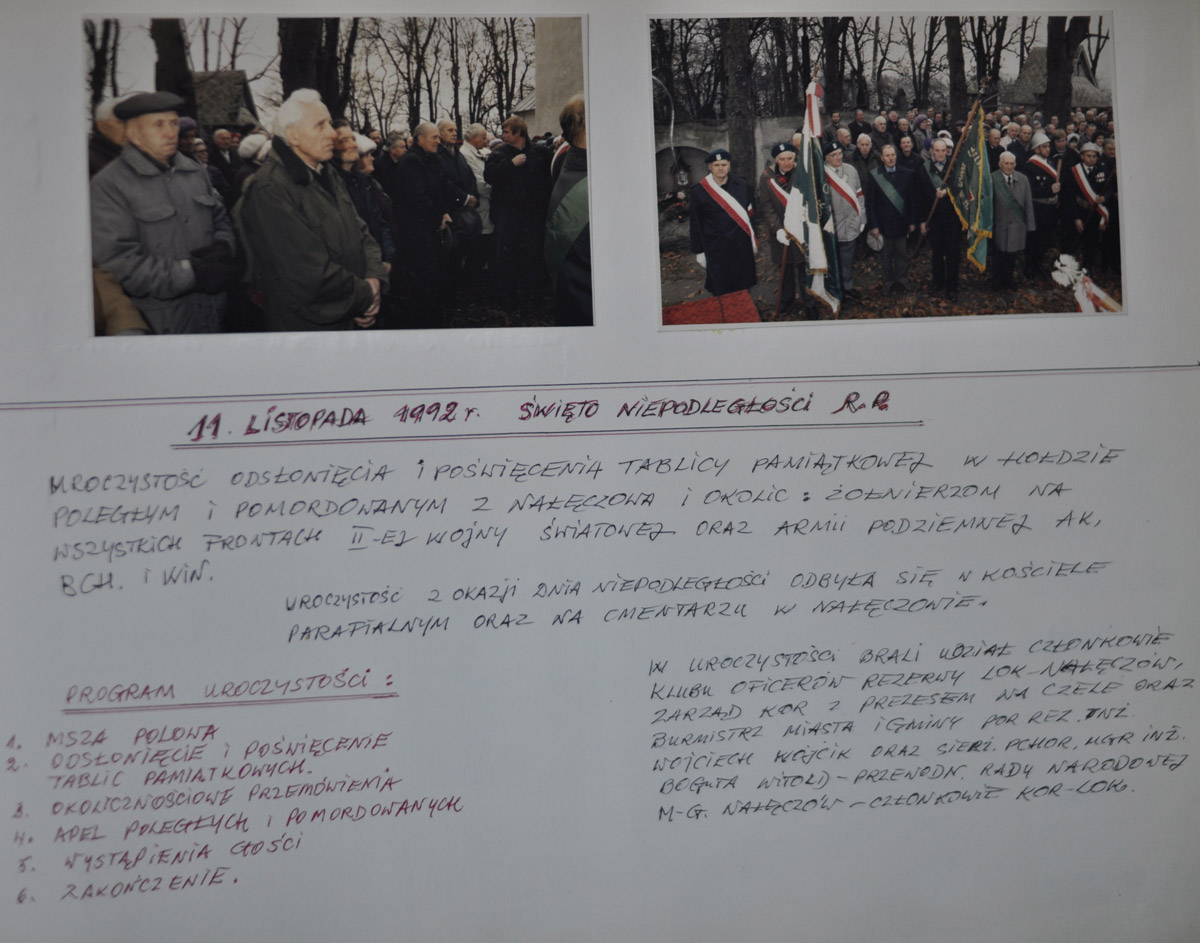 11. LISTOPADA 1992 r. ŚWIĘTO NIEPODLEGŁOŚCI R.P.
UROCZYSTOŚĆ ODSŁONIĘCIA i POŚWIĘCENIA TABLICY PAMIĄTKOWEJ W HOŁDZIE
POLEGŁYM i POMORDOWANYM Z NAŁĘCZOWA i OKOLIC : ŻOŁNIERZOM NA
WSZYSTKICH FRONTACH II-EJ WOJNY ŚWIATOWEJ ORAZ ARMII PODZIEMNEJ AK,
BCH. i WIN.
UROCZYSTOŚĆ Z OKAZJI DNIA NIEPODLEGŁOŚCI ODBYŁA SIĘ W KOŚCIELE
PARAFIALNYM ORAZ NA CMENTARZU W NAŁĘCZOWIE.
PROGRAM UROCZYSTOŚCI :
1. MSZA POLOWA
2. ODSŁONIĘCIE i POŚWIĘCENIE
TABLIC PAMIĄTKOWYCH.
3. OKOLICZNOŚCIOWE PRZEMÓWIENIA
4. APEL POLEGŁYCH i POMORDOWANYCH
5. WYSTĄPIENIA GOŚCI
6. ZAKOŃCZENIE.
W UROCZYSTOŚCI BRALI UDZIAŁ CZŁONKOWIE
KLUBU OFICERÓW REZERWY LOK-NAŁĘCZÓW,
ZARZĄD KOR Z PREZESEM NA CZELE ORAZ
BURMISTRZ MIASTA i GMINY POR REZ. INŻ.
WOJCIECH WÓJCIK ORAZ SIERŻ. PCHOR. MGR INŻ.
BOGUTA WITOLD - PRZEWODN. RADY NARODOWEJ
M-G. NAŁĘCZÓW - CZŁONKOWIE KOR-LOK.